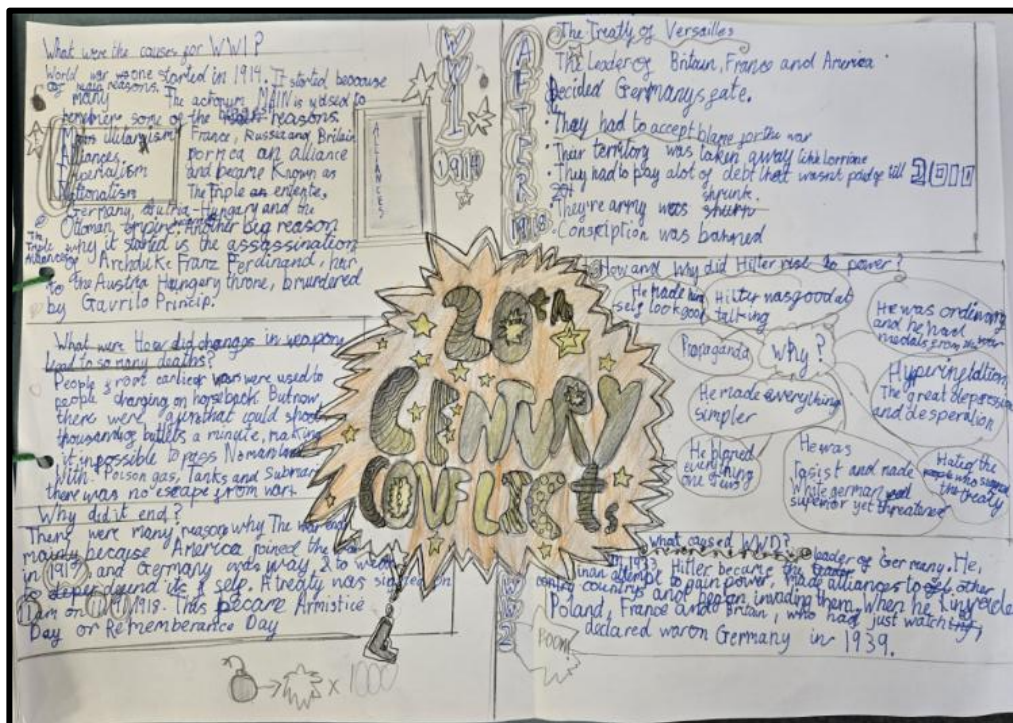 What were the causes for WW1?
World war one started in 1914. It started beocause
of many reasons. The acronym MAIN is used to
remember some of the reasons.
Militarism
Alliances,
Imperialism
Nationalism
France, Russia and Britain
formed an alliance
and became known as
The triple entente,
Germany, Austria-Hungary and the
Ottoman empire. Another big reason
The Triple Alliance
why it started is the assassination
of Archduke Franz Ferdinand, heir
to the Austria Hungery throne, murdered
by Gavrilo Princip.
ALLIANCES
WW1
1914
What were How did changes in weapons
lead to so many deaths?
People from earlier wars were used to
people charging on horseback. But now,
there were a gun that could shoot
thousands of bullets a minute, making
it impossible to pass No man
With Poison gas, Tanks and Submar
there was no escape from war.
Why did it end?
There were many reasons why The war end
mainly because America joined the
in 1917, and Germany was way to weak
to depend its self. A treaty was signed on
11am on 11/11/1918. This became Armistice
Day or Rememberance Day
x 1000
20th
CENTURY
CONFLICTS
AFTER
1918
The Treaty of Versailles
The Leader of Britain, France and America
Decided Germanys fate.
• They had to accept blame for the war
• Their territory was taken away like Lorriane
• They had to pay alot of debt that wasn't paid of till 2010
They're army was shrunk.
• Conscription was banned
How and Why did Hitler rise to power?
He made him
self look good
Hilter was good at
talking
He was ordinary
and he had
medals from
Propaganda
Why?
Hyperinflation
The great depression
and desperation
He made everything
simpler
He blamed
everything
on Jews
He was
rasist and made
White german
superior yet threatened
Hated the people who signed
the treaty
WW2
What caused WWII?
In 1933 Hitler became the leader of Germany. He,
in an attempt to gain power, made alliances to other
countrys and began invading them, when he invade
Poland, France and Britain, who had just watch
declared war on Germany in 1939.
BOOM!